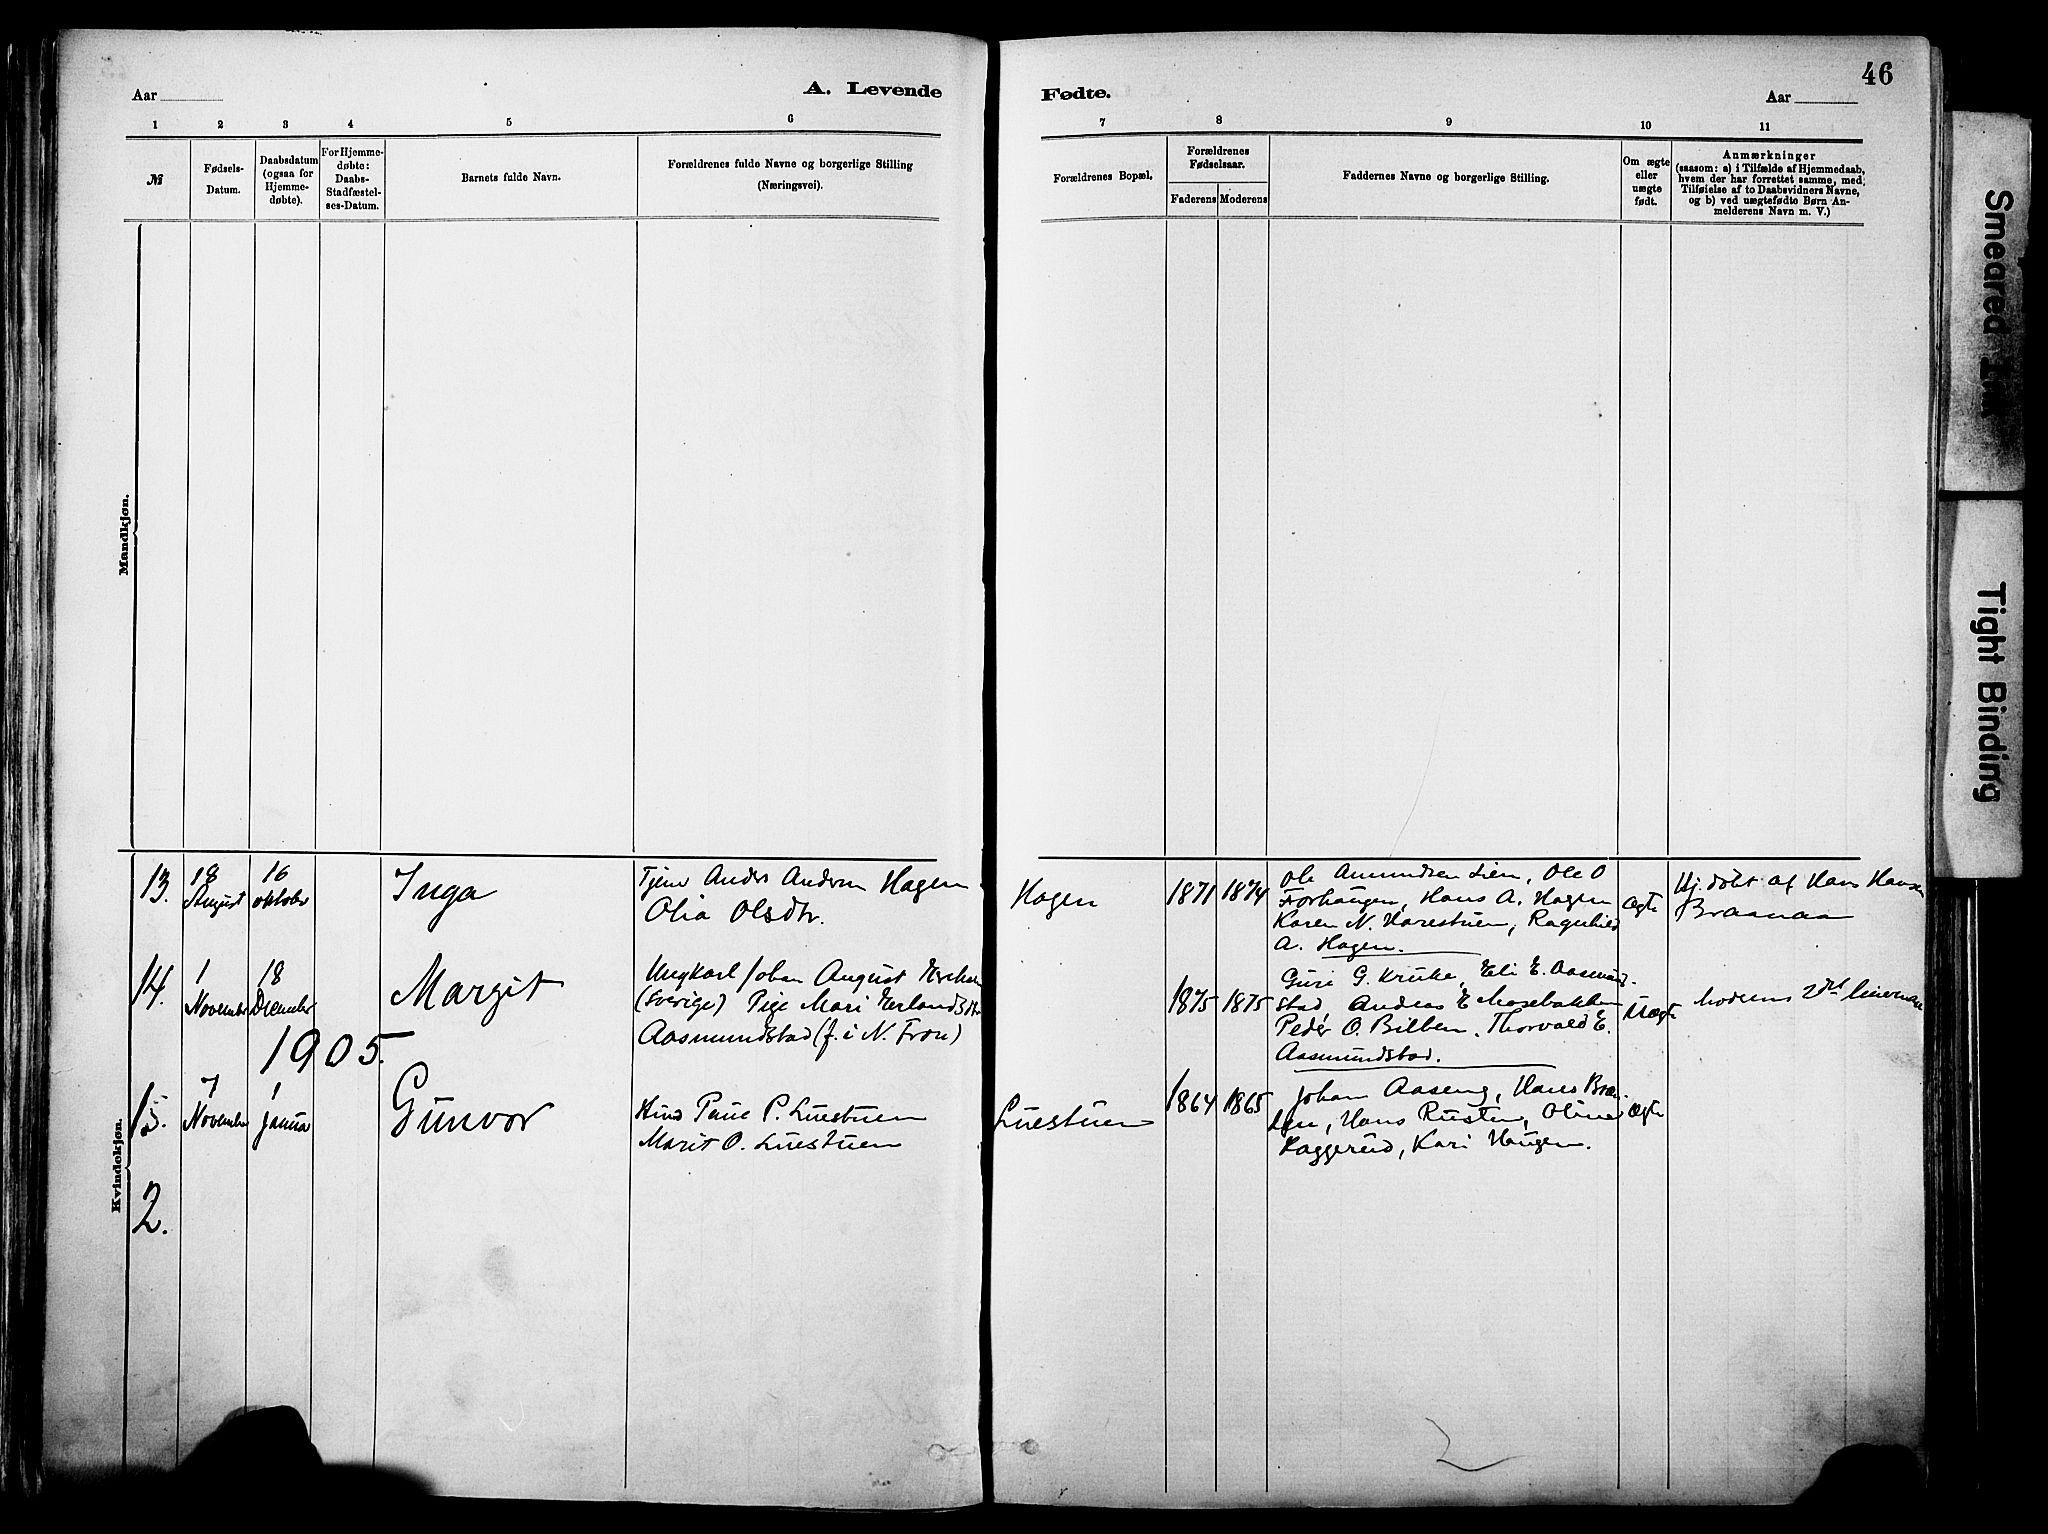 46
Aar
A. Levende
Fødte.
Aar
1
2
3
4
5
6
7
8
9
10
11
№
Fødsels-
Datum.
Daabsdatum
(ogsaa for
Hjemme-
døbte).
For Hjemme-
døbte:
Daabs-
Stadfæstel-
ses-Datum.
Barnets fulde Navn.
Forældrenes fulde Navne og borgerlige Stilling
(Næringsvei).
Forældrenes Bopæl.
Forældrenes
Fødselsaar.
Faderens
Moderens
Faddernes Navne og borgerlige Stilling.
Om ægte
eller
uægte
født.
Anmærkninger
(saasom: a) i Tilfælde af Hjemmedaab,
hvem der har forrettet samme, med
Tilføielse af to Daabsvidners Navne,
og b) ved uægtefødte Børn An-
melderens Navn m. V.)
Mandkjøn.
Kvindekjøn.
13.
18
August
16
oktober
Inga
Tjener Anders Andersen Hagen
Olia Olsdtr.
Hagen
1871
1874
Ole Amundsen Lien, Ole O
Forhaugen, Hans A. Hagen
Karen N. Harestuen, Ragnhild
A. Hagen.
Ægte
Hj. døbt af Hans Hansen
Braanaa
14.
1
November
18
December
Margit
Ungkarl Johan August
(Sverige) Pige Mari Erlandsdtr.
Aasmundstad (f. i N. Fron)
1875
1875
Guri G. Kruke, Eli E. Aasmund-
stad Andreas E Mosebakken
Peder O. Bilben, Thorvald E.
Aasmundstad.
Uægte
Moderens 2det
1905.
15.
7
November
1
Januar
Gunvor
Paul P. Luestuen
Marit O. Luestuen
Luestuen
1864
1865
Johan Aaseng, Hans Bræn-
den, Hans Rusten, Oline
Kaggerud, Kari Haugen.
Ægte
2.
Smeared Ink
Tight Binding